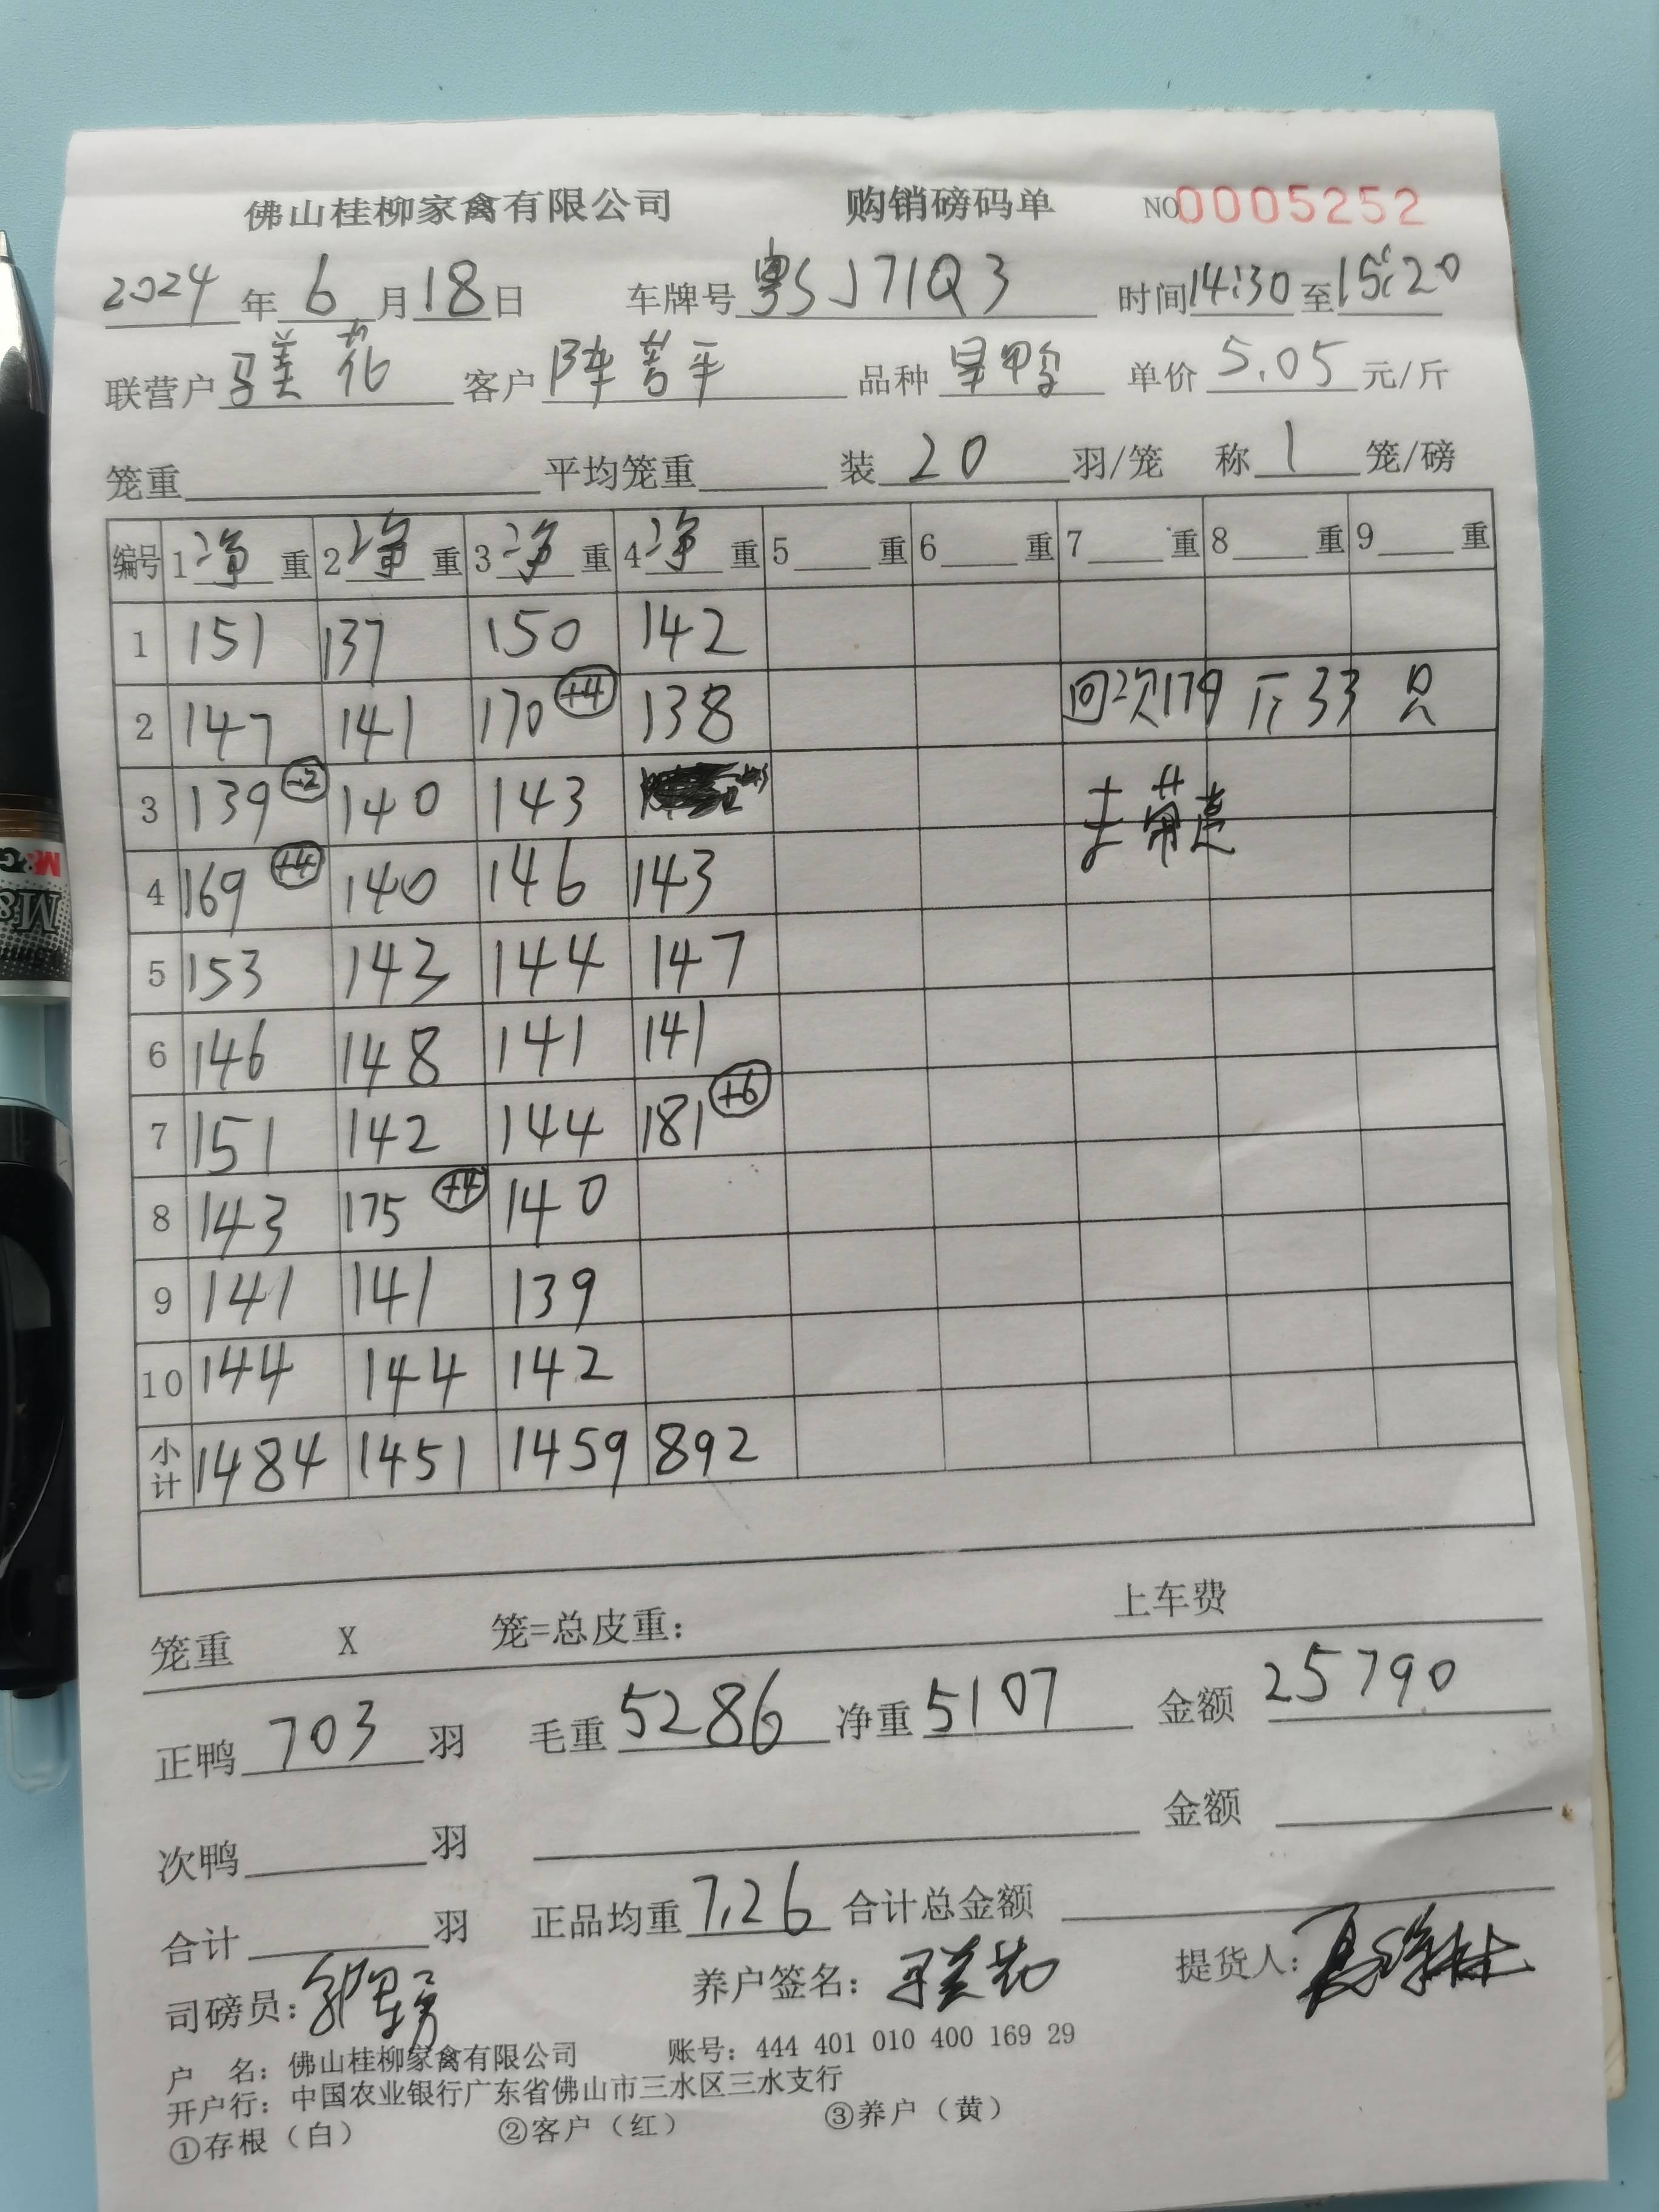 佛山桂柳家禽有限公司 购销磅码单 NO 0005252
2024 年 6 月 18 日 车牌号 粤SJ71Q3 时间 14:30 至 15:20
联营户 美花 客户 平 品种 单价 5.05 元/斤
笼重 平均笼重 装 20 羽/笼 称 1 笼/磅
编号 1 净 重 2 净 重 3 净 重 4 净 重 5 重 6 重 7 重 8 重 9 重
1 151 137 150 142
2 147 141 170 +4 138 回次179斤33只
3 139 -2 140 143
4 169 +4 140 146 143
5 153 143 144 147
6 146 148 141 141
7 151 142 144 181 +6
8 143 175 +4 140
9 141 141 139
10 144 144 142
小计 1484 1451 1459 892
笼重 X 笼=总皮重: 上车费
正鸭 703 羽 毛重 5286 净重 5107 金额 25790
次鸭 羽 金额
合计 羽 正品均重 7.26 合计总金额
司磅员: 养户签名: 提货人:
户 名: 佛山桂柳家禽有限公司 账号: 444 401 010 400 169 29
开户行: 中国农业银行广东省佛山市三水区三水支行
①存根(白) ②客户(红) ③养户(黄)